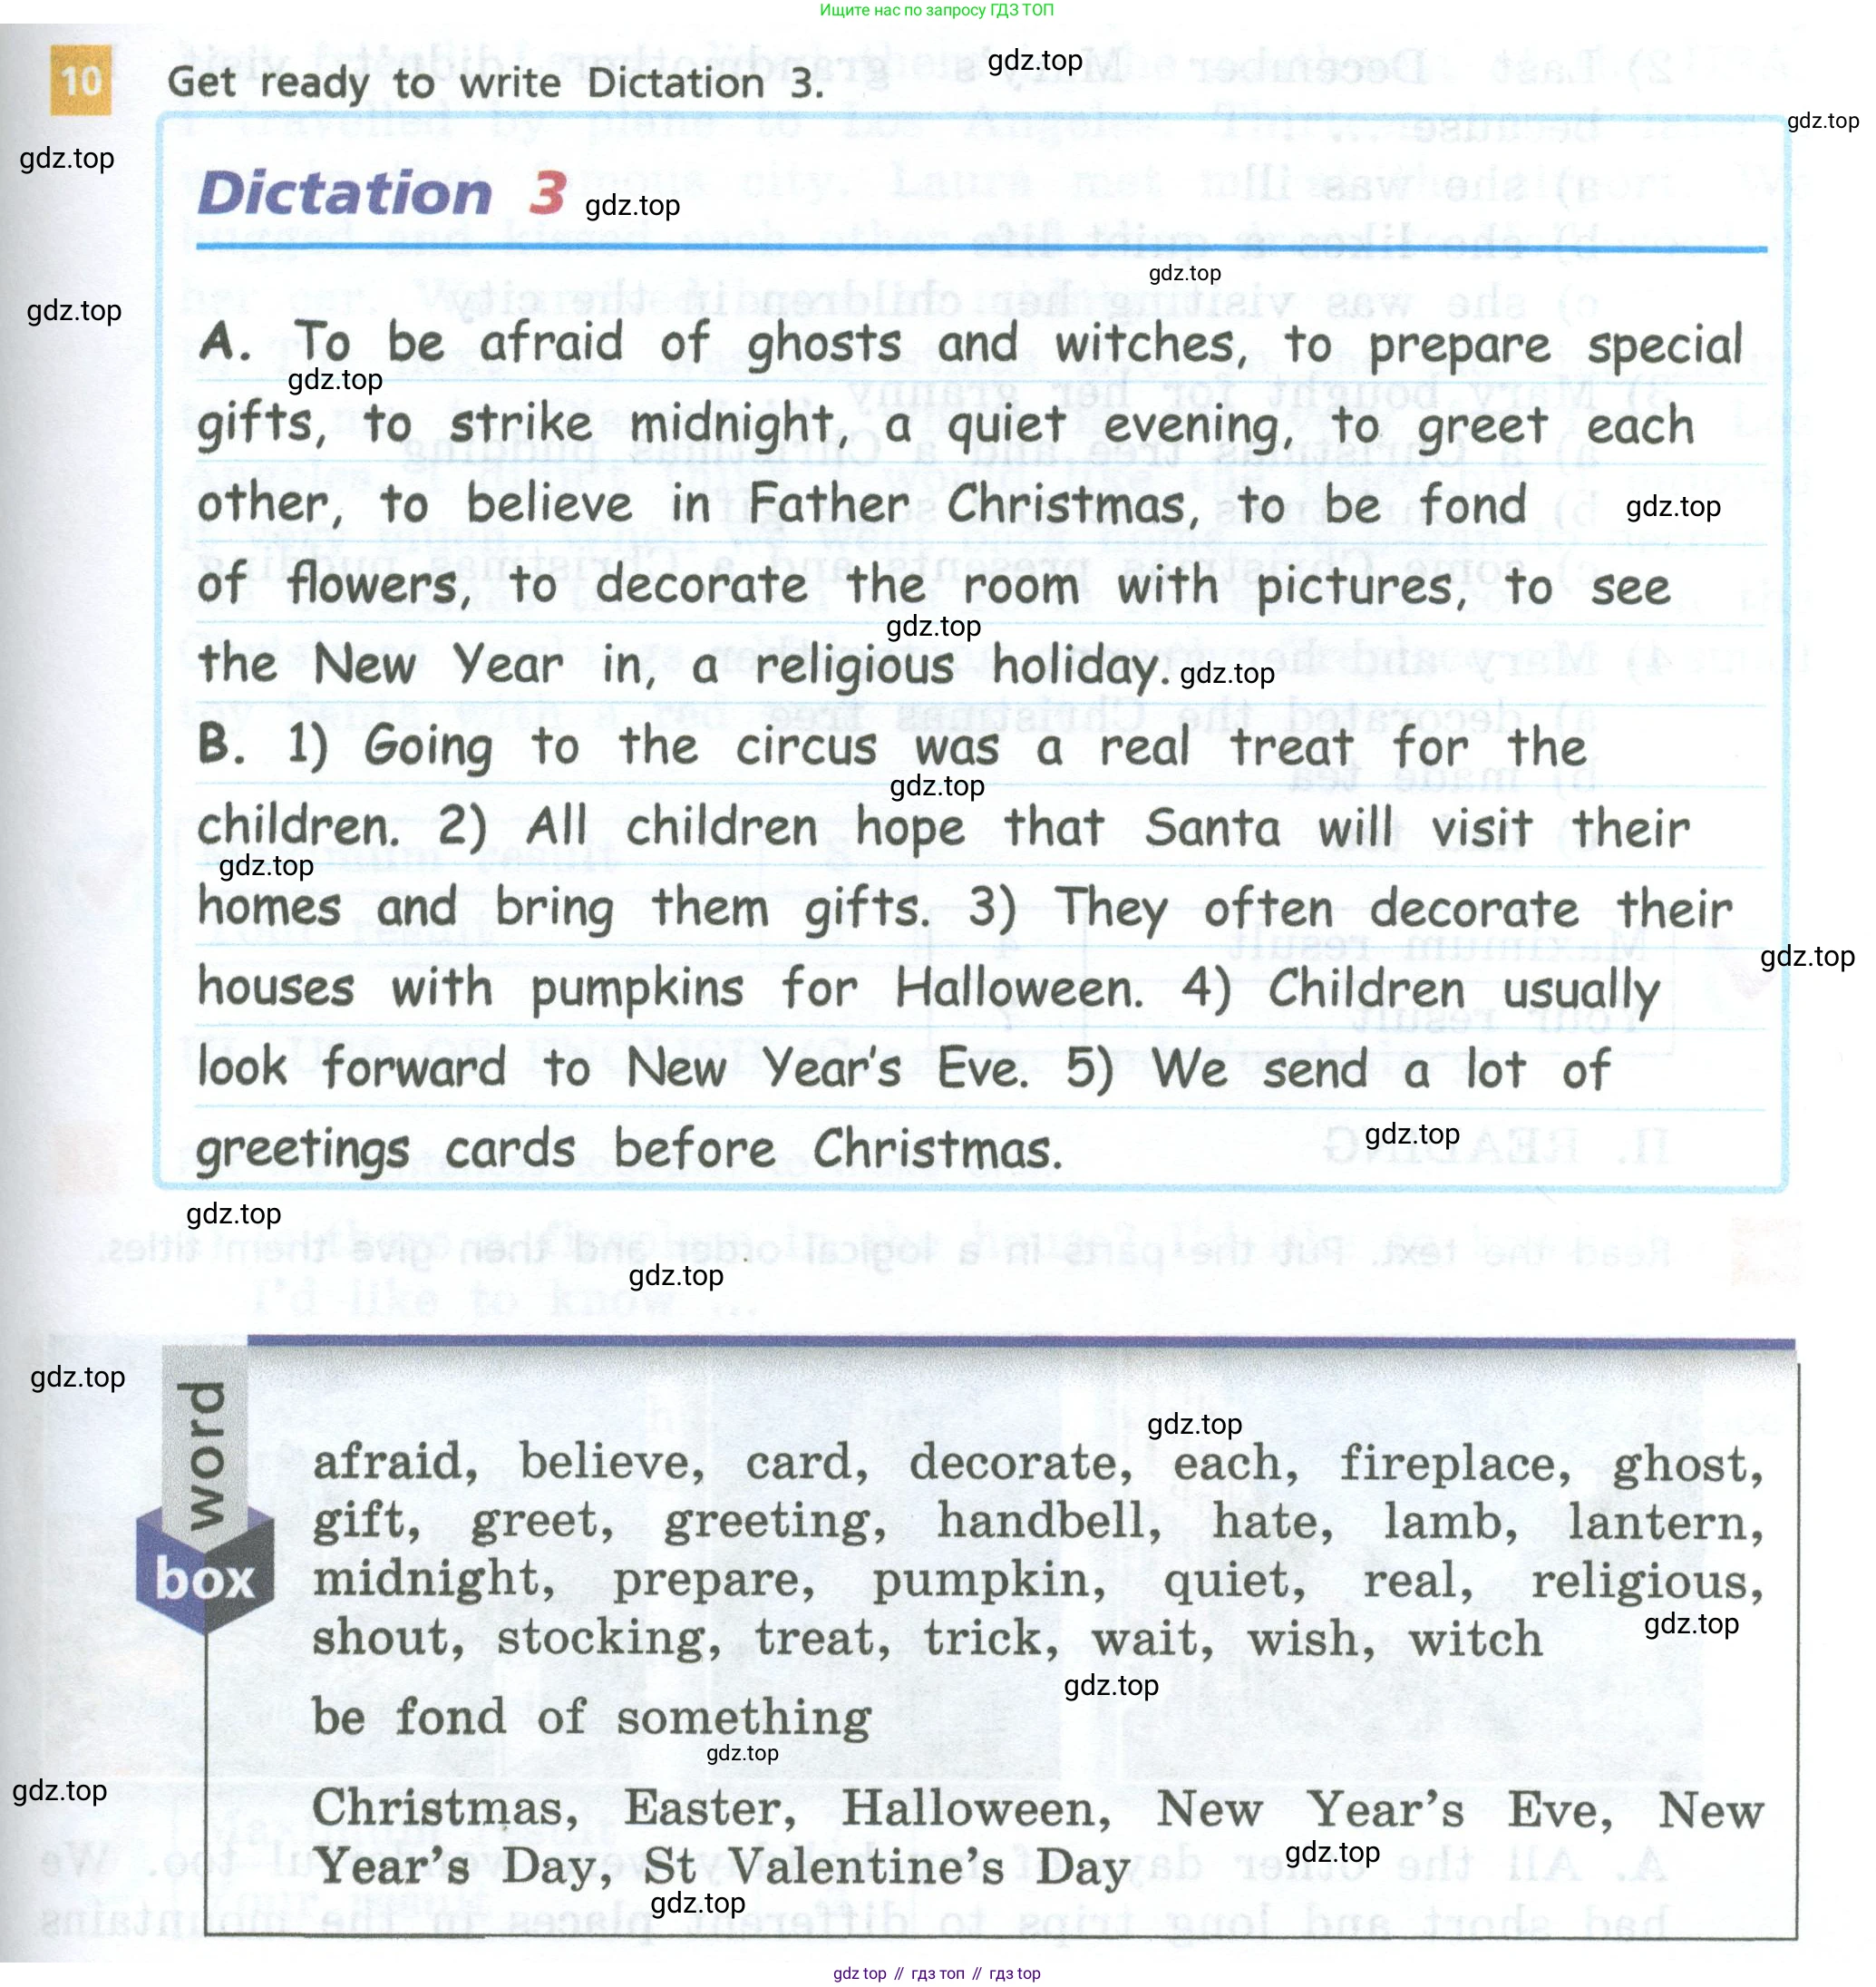 Ищите нас по запросу ГДЗ ТОП
10 Get ready to write Dictation 3.
gdz.top
gdz.top
gdz.top
Dictation 3
gdz.top
gdz.top
gdz.top
A. To be afraid of ghosts and witches, to prepare special
gdz.top
gifts, to strike midnight, a quiet evening, to greet each
other, to believe in Father Christmas, to be fond
gdz.top
of flowers, to decorate the room with pictures, to see
gdz.top
the New Year in, a religious holiday.
gdz.top
B. 1) Going to the circus was a real treat for the
gdz.top
children. 2) All children hope that Santa will visit their
gdz.top
homes and bring them gifts. 3) They often decorate their
gdz.top
houses with pumpkins for Halloween. 4) Children usually
look forward to New Year's Eve. 5) We send a lot of
gdz.top
greetings cards before Christmas.
gdz.top
gdz.top
gdz.top
word
box
gdz.top
afraid, believe, card, decorate, each, fireplace, ghost,
gift, greet, greeting, handbell, hate, lamb, lantern,
midnight, prepare, pumpkin, quiet, real, religious,
gdz.top
shout, stocking, treat, trick, wait, wish, witch
gdz.top
be fond of something
gdz.top
gdz.top
Christmas, Easter, Halloween, New Year's Eve, New
gdz.top
Year's Day, St Valentine's Day
gdz.top
gdz top // гдз топ // gdz top